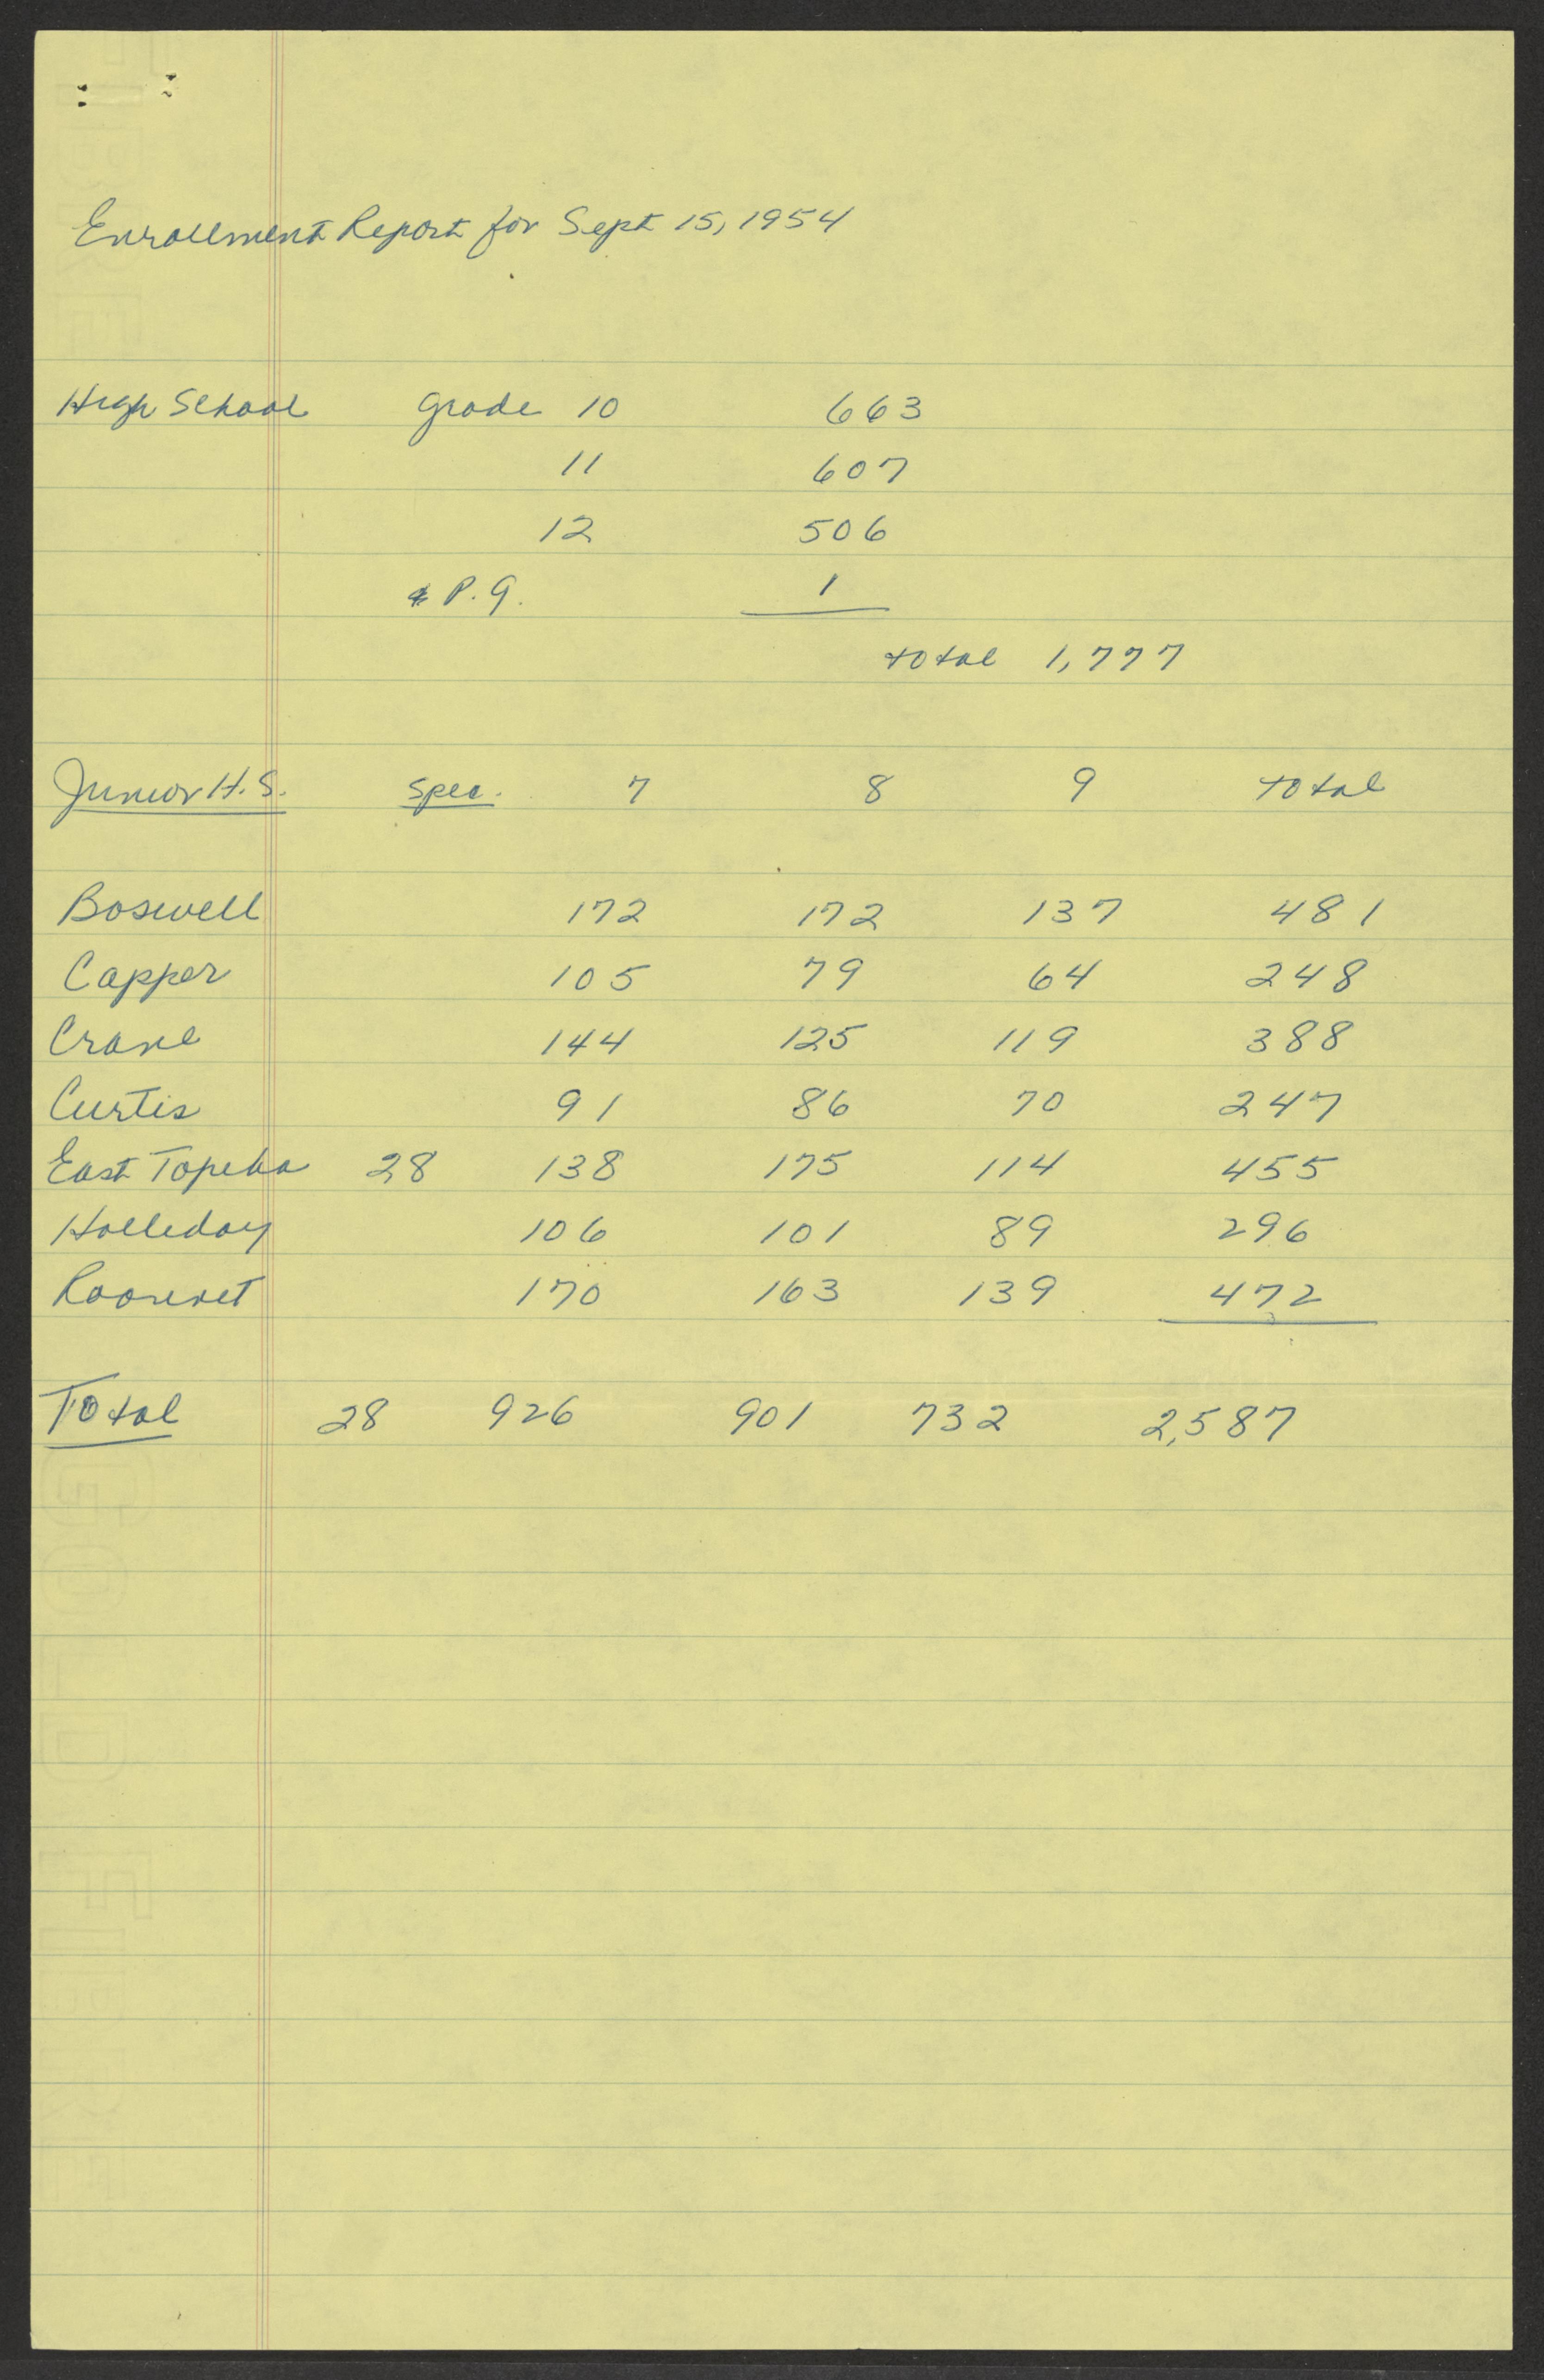 Enrollment Report for Sept 15, 1954
High School Grade 10 663
11 607
12 506
& P.G. 1
total 1,777
Junior H.S. Spec. 7 8 9 total
Boswell 172 172 137 481
Capper 105 79 64 248
Crane 144 125 119 388
Curtis 91 86 70 247
East Topeka 28 138 175 114 455
Holliday 106 101 89 296
Roosevelt 170 163 139 472
Total 28 926 901 732 2,587